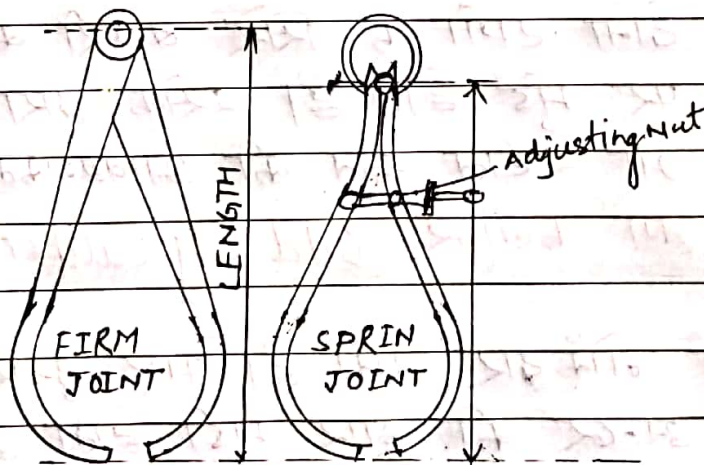 LENGTH
Adjusting Nut
FIRM
JOINT
SPRIN
JOINT